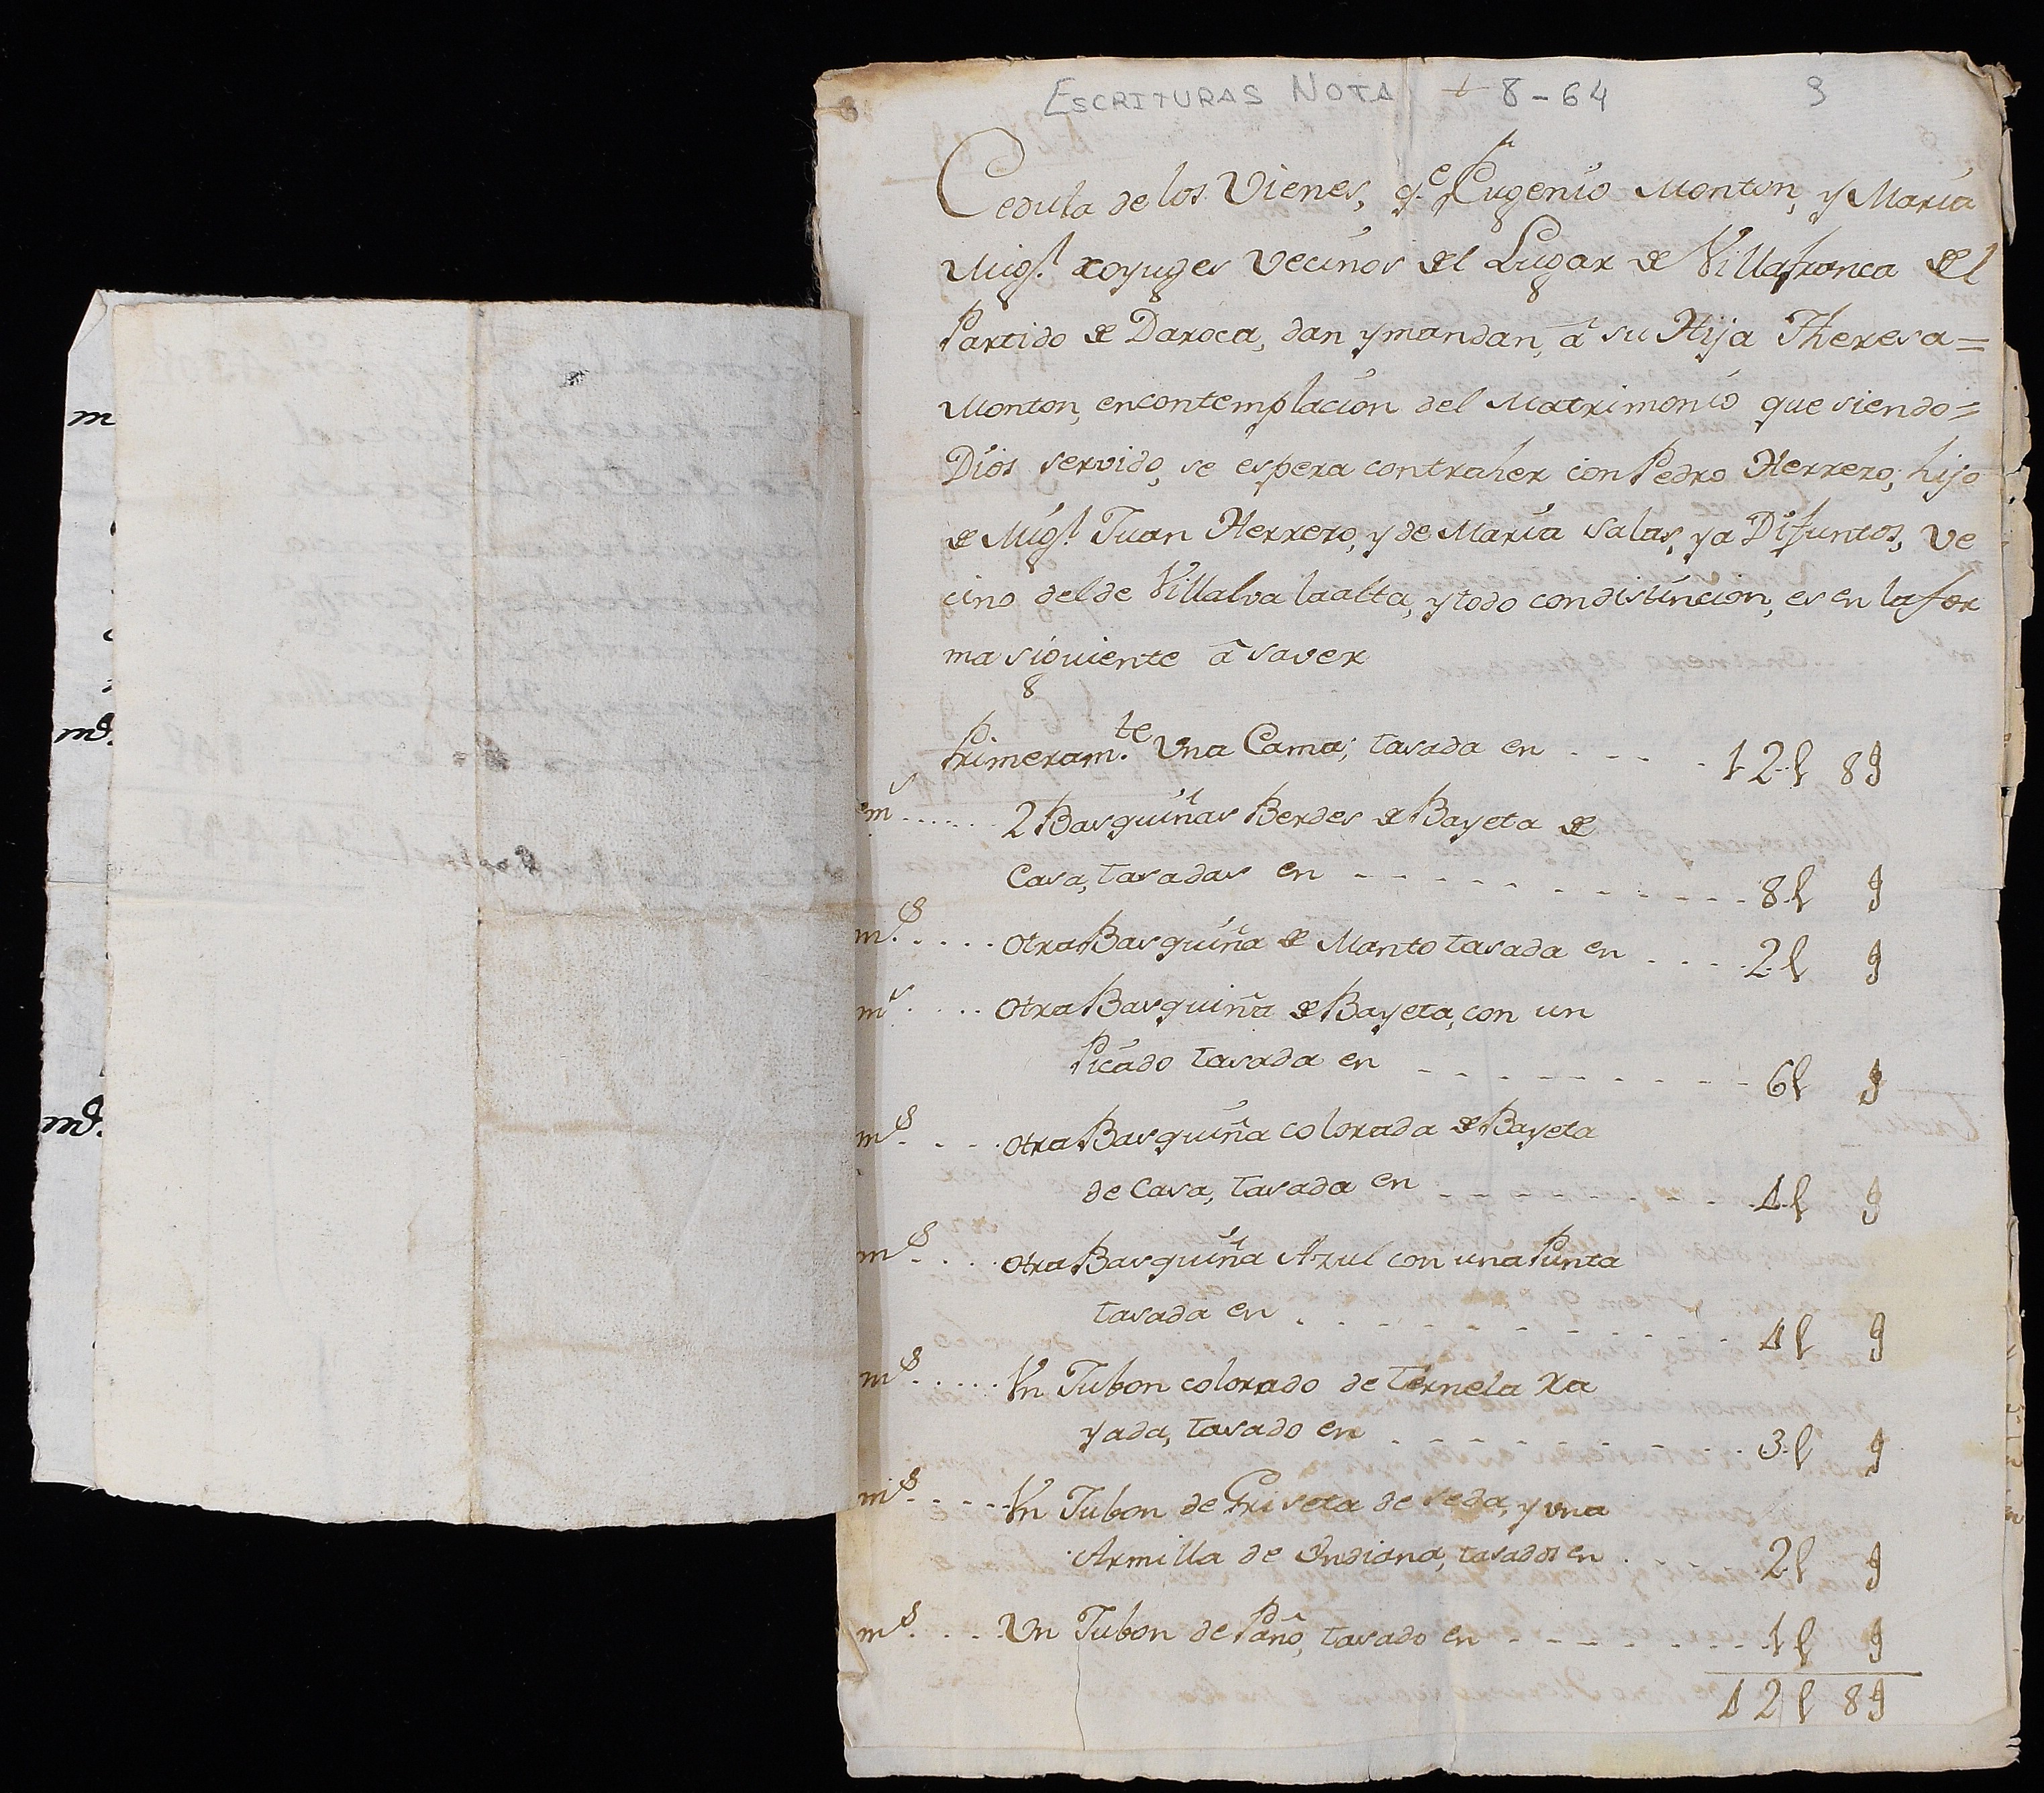 ESCRITURAS NOTA + 8-64 9
Cedula de los Vienes, q.e Eugenio Monton, y Maria
Mig.l coyuges Vecinos del Lugar de Villafranca del
Partido de Daroca, dan y mandan, â su Hija Theresa=
Monton, en contemplacion del Matrimonio que siendo=
Dios servido, se espera contraher con Pedro Herrero, hijo
de Mig.l Juan Herrero, y de Maria Salas, ya Difuntos, Ve
cino del de Villalva la alta, y todo con distincion, es en la for
ma siguiente â saver
Primeram.te Una Cama, tasada en - - - - 12 l 8 s
m.s ...... 2 Basquiñas Berdes de Bayeta de
Casa, tasadas en - - - - - - - - - 8 l s
m.s ..... otra Basquiña de Manto tasada en .... 2 l s
m.s .... otra Basquiña de Bayeta, con un
Picado tasada en - - - - - - - - - 6 l s
m.s ... otra Basquiña colorada de Bayeta
de Casa, tasada en - - - - - - - - 4 l s
m.s .... otra Basquiña Azul con una Punta
tasada en - - - - - - - - - - - 4 l s
m.s ..... Vn Jubon colorado de Ternela Ra
yada, tasado en - - - - - - - - - 3 l s
m.s ..... Vn Jubon de Griseta de seda, y una
Armilla de Indiana, tasados en . 2 l s
m.s .... Un Jubon de Paño, tasado en - - - - - - - 1 l s
42 l 8 s
m
md.
md.